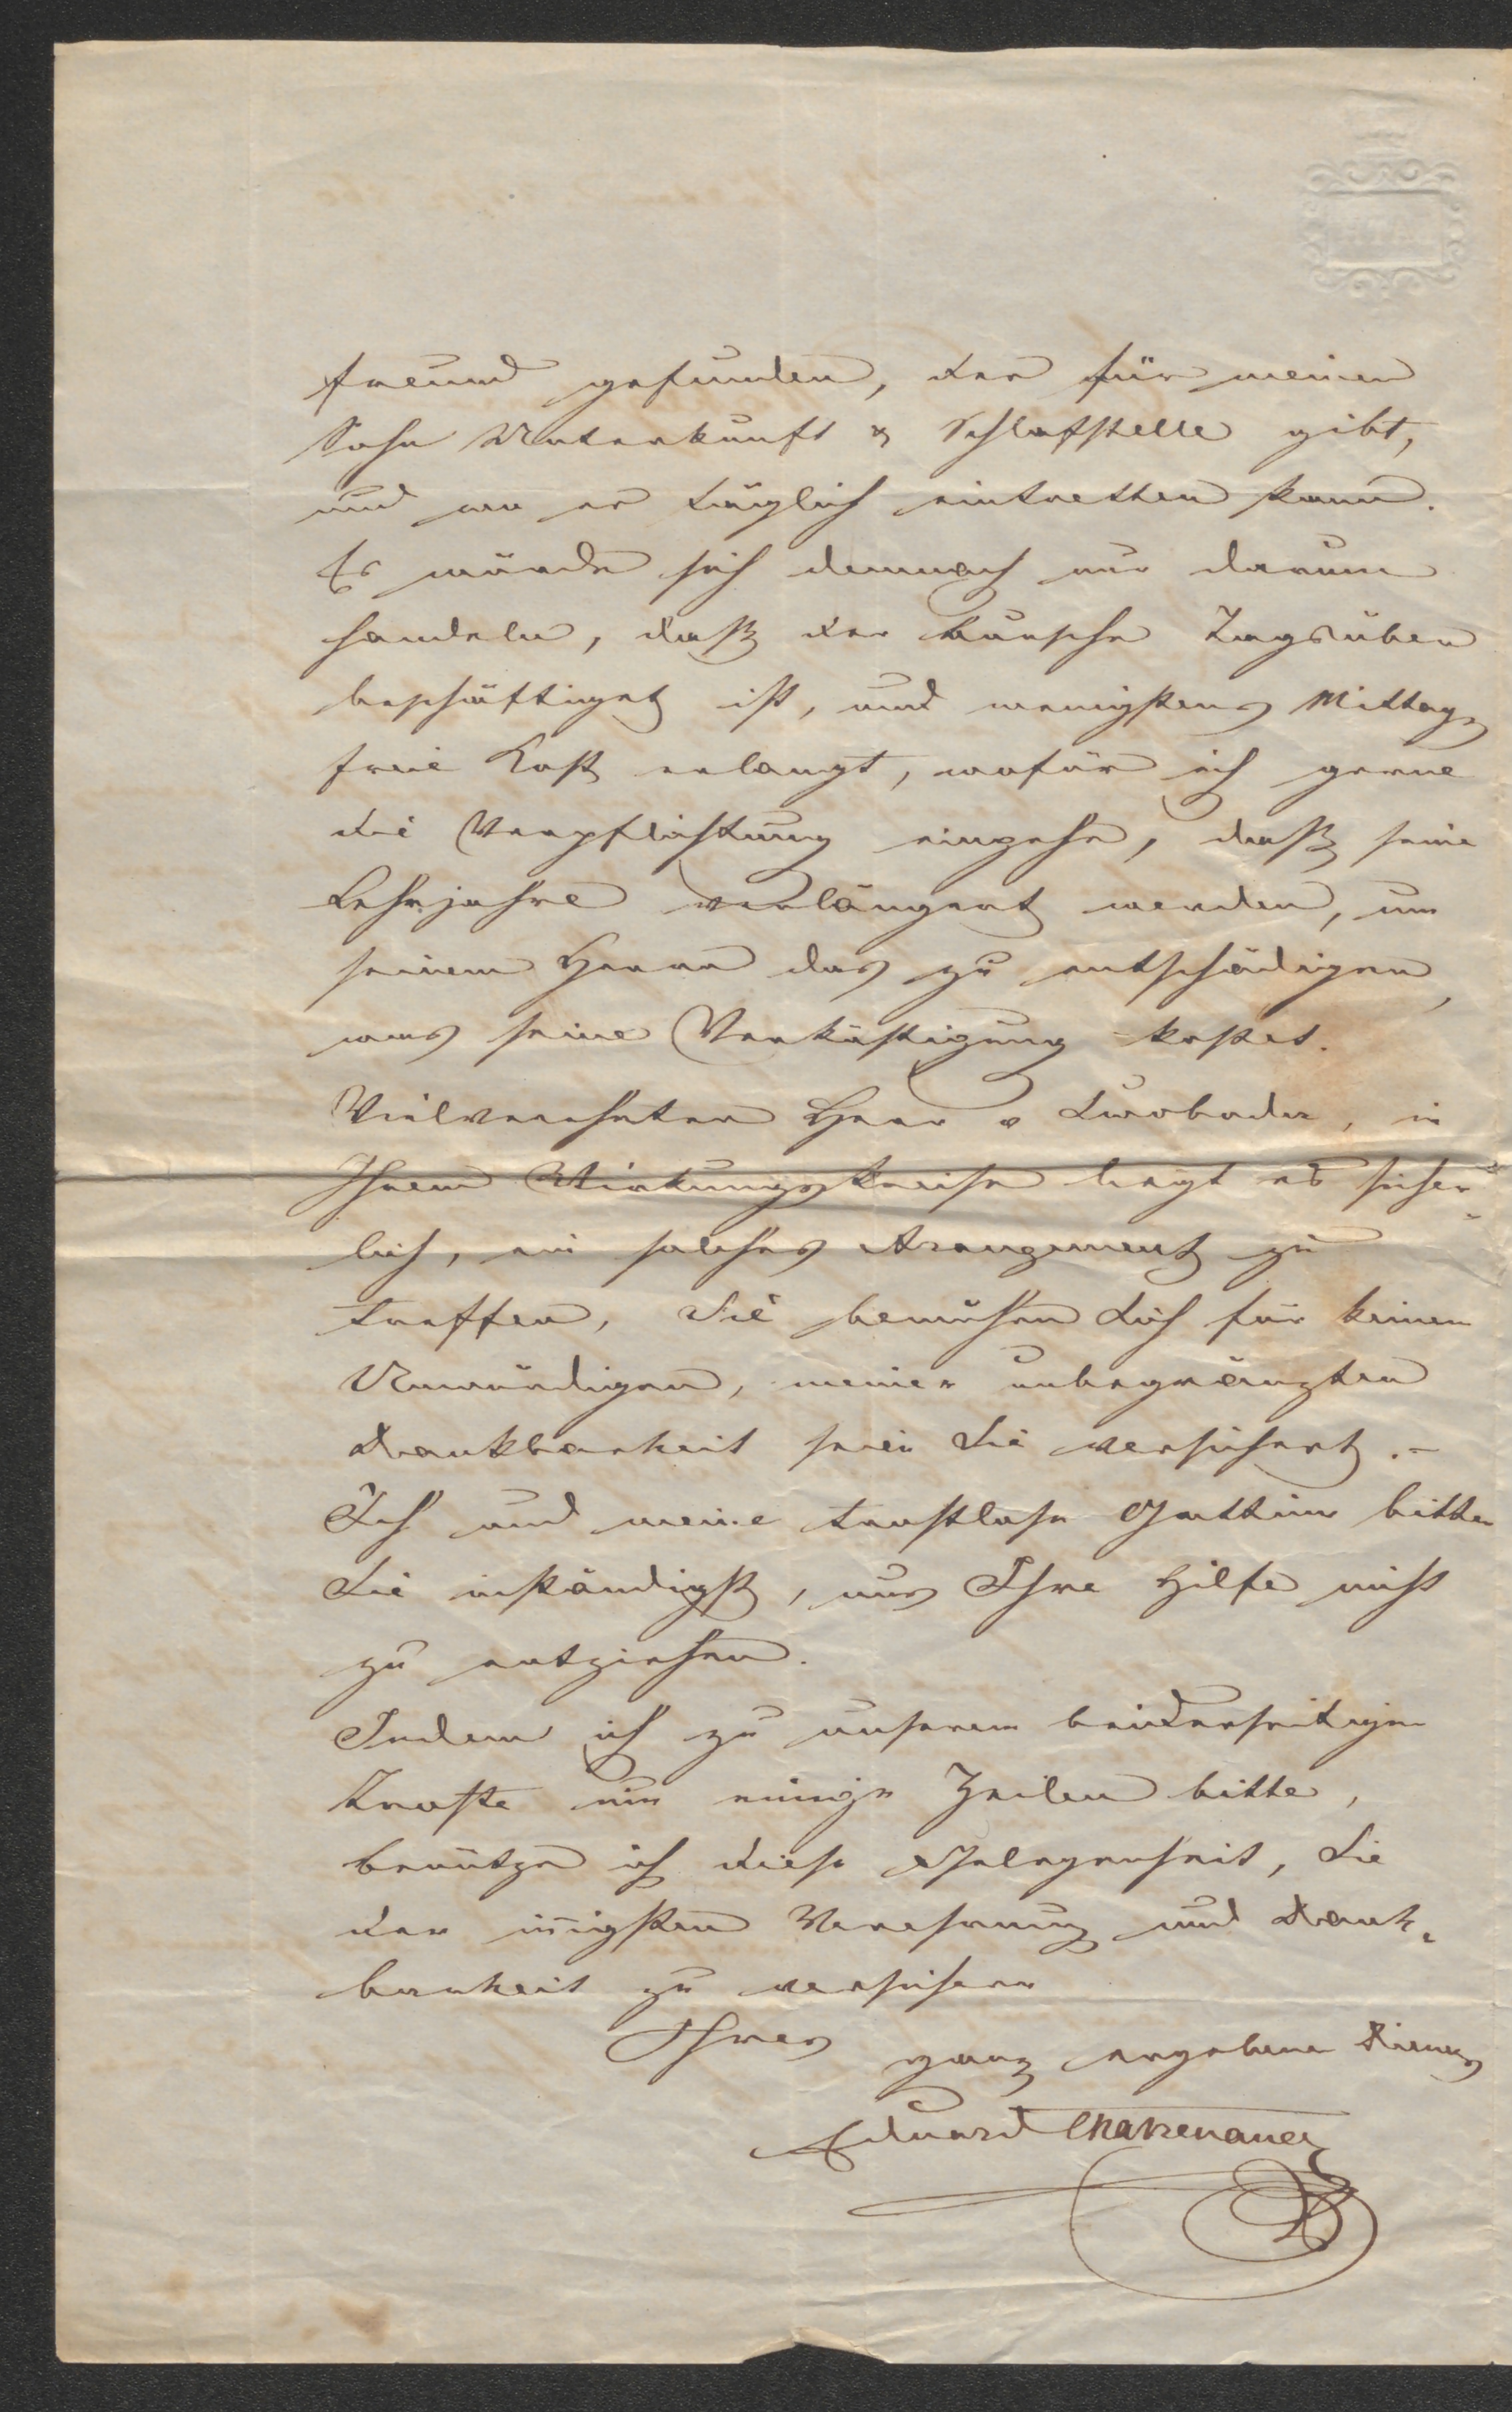 freund gefunden, der für meinen
Sohn Unterkunft & Schlafstelle gibt,
und wo er täglich eintretten kann.
Es würde sich demnach nur darum
handeln, daß der Bursche Tagsüber
beschäftiget ist, und wenigstens Mittags
freie Kost erlangt, wofür ich gerne
die Verpflichtung eingehe, daß seine
Lehrjahre verlängert werden, um
seinem Herrn das zu entschädigen,
was seine Verköstigung kostet.
Vielverehrter Herr v Swoboda, in
Ihrem Wirkungskreise liegt es sicher-
lich, ein solches Arangement zu
treffen, Sie bemühen Sich für keinen
Unwürdigen, meiner unbegränzten
Dankbarkeit seien Sie versichert.-
Ich und meine trostlose Gattin bitten
Sie inständigst, uns Ihre Hilfe nicht
zu entziehen.
Indem ich zu unserem beiderseitigen
Troste um einige Zeilen bitte,
benütze ich diese Gelegenheit, Sie
der innigsten Verehrung und Dank-
barkeit zu versichern
Ihres ganz ergebene Dieners
Eduard